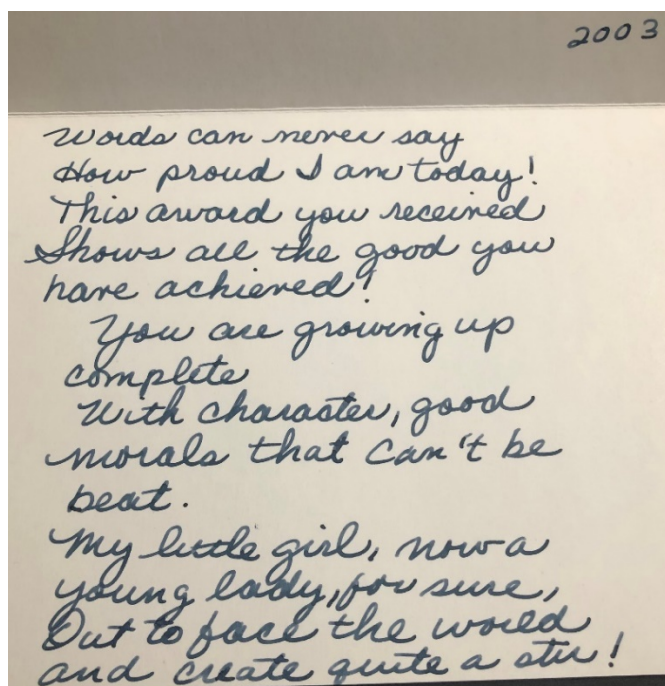 2003
Words can never say
How proud I am today!
This award you received
Shows all the good you
have achieved!
You are growing up
complete
With character, good
morals that can't be
beat.
My little girl, now a
young lady, for sure,
Out to face the world
and create quite a stir!